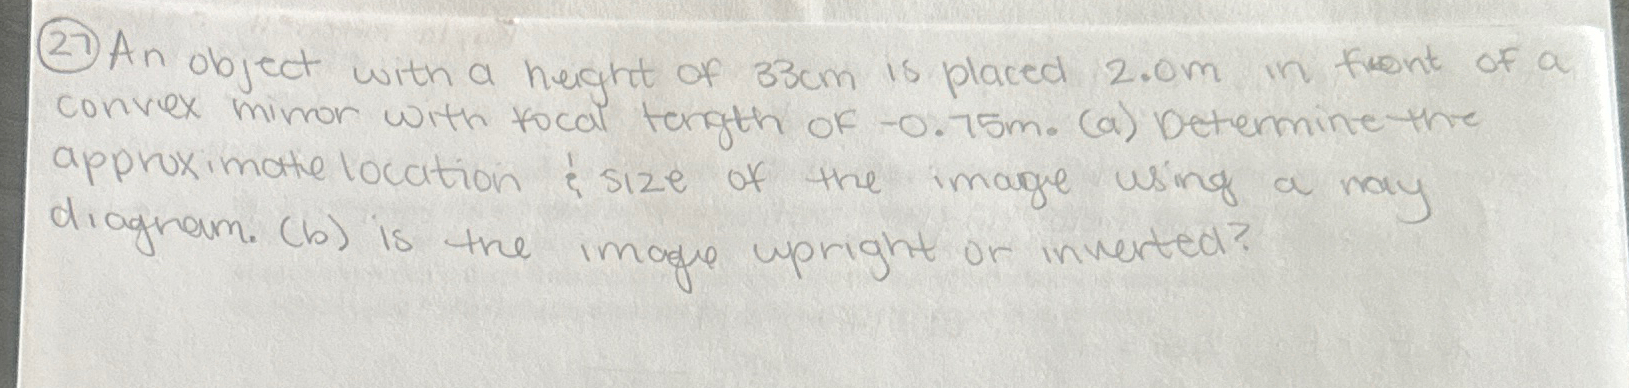 27 An object with a height of 33cm is placed 2.0m in front of a
convex mirror with focal length of -0.75m. (a) Determine the
approximate location & size of the image using a ray
diagram. (b) is the image upright or inverted?